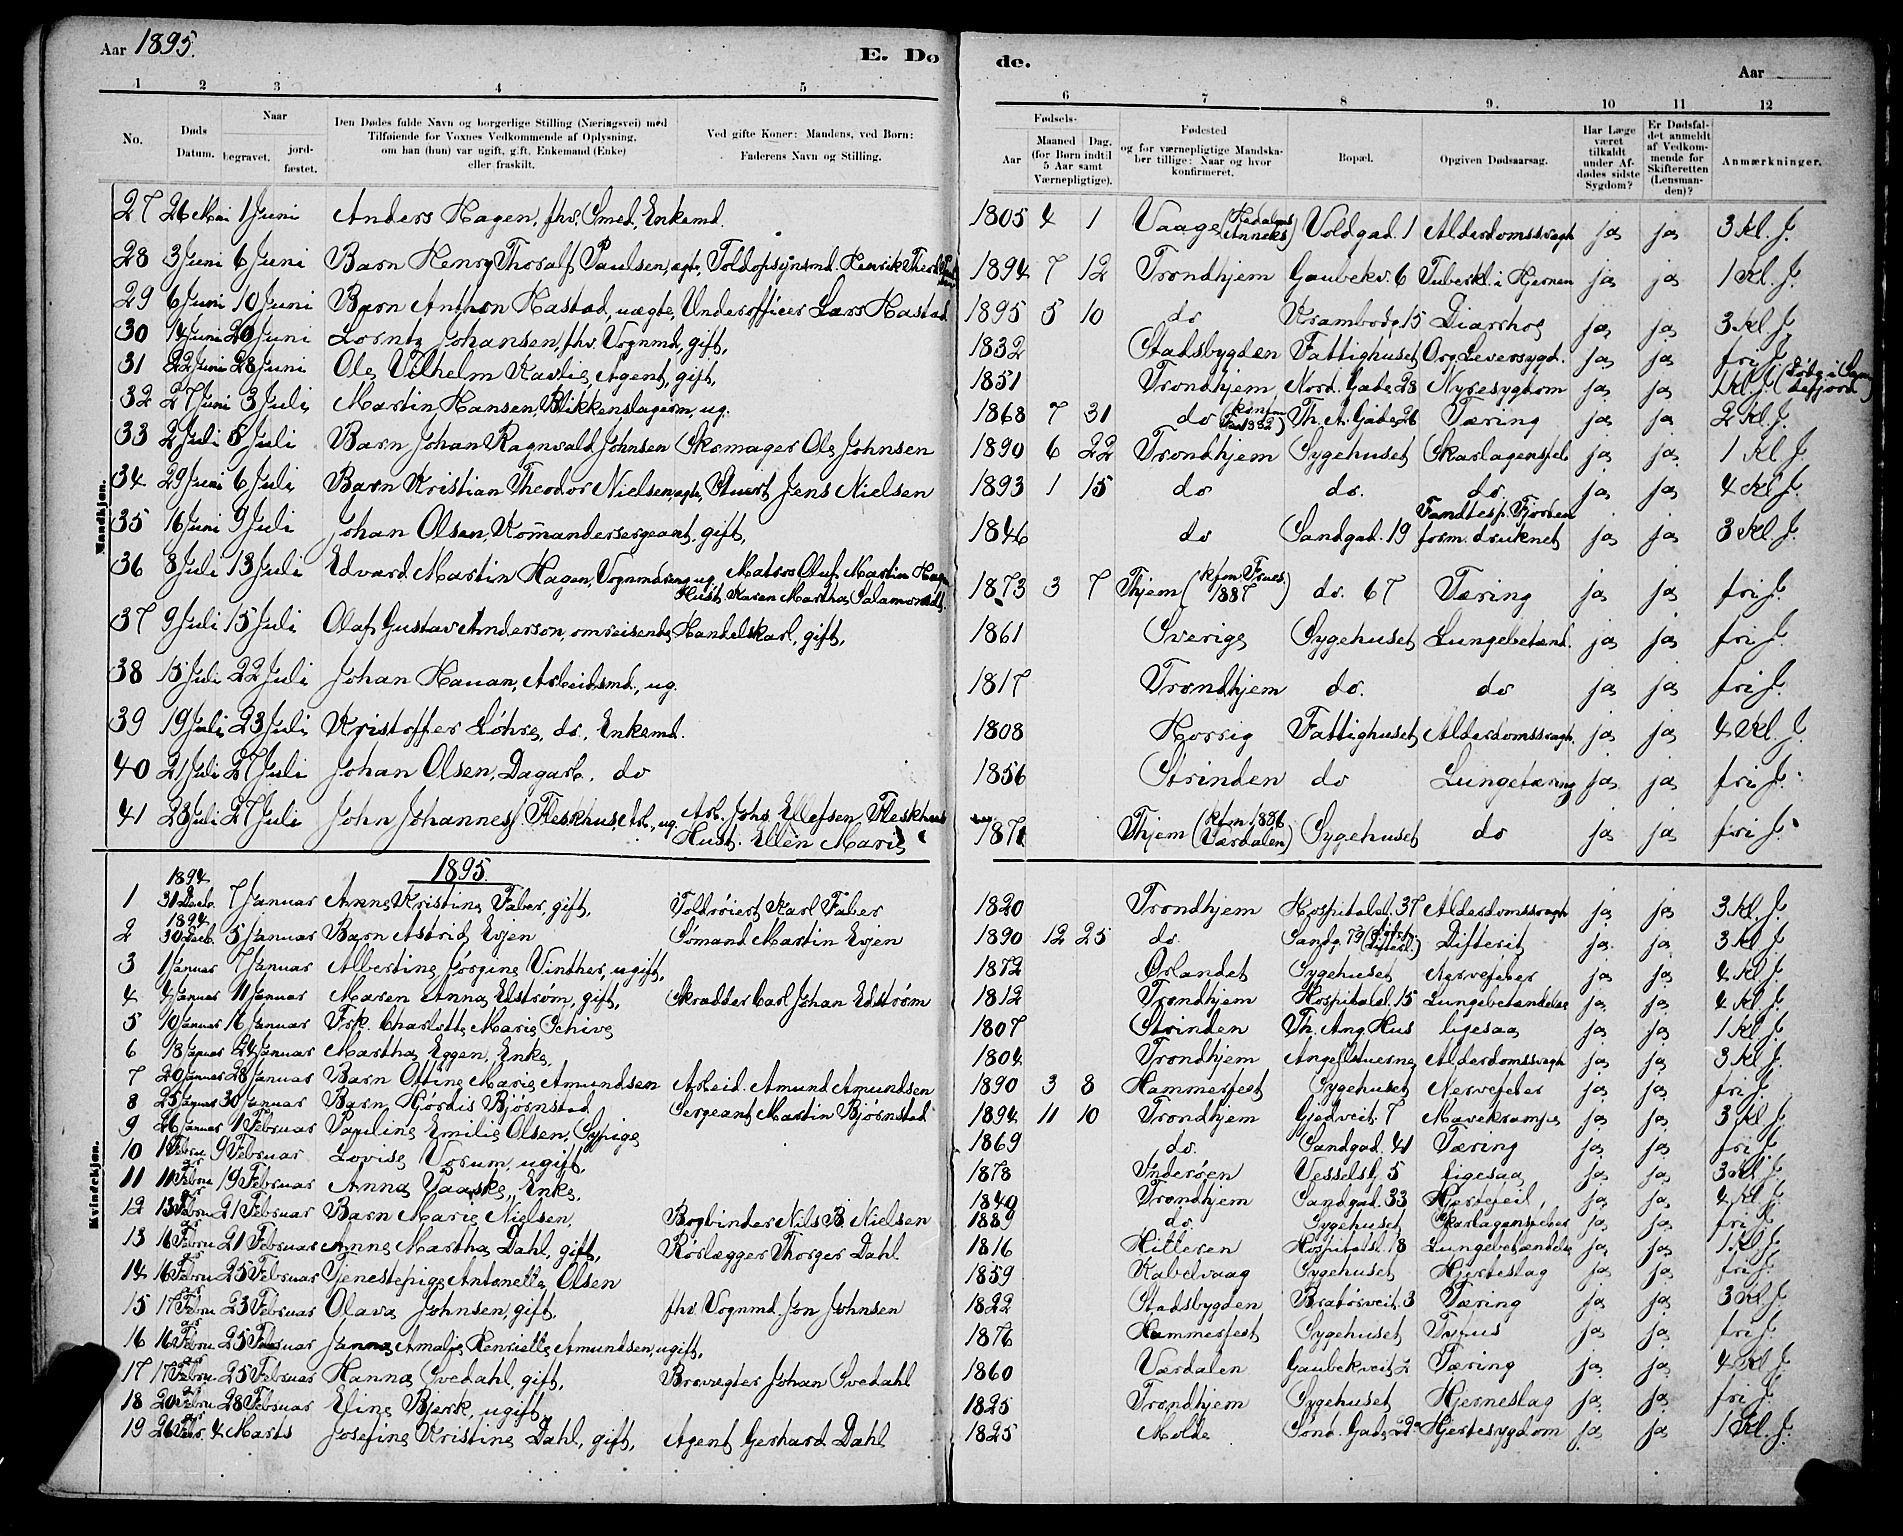 Aar 1895.
E. Dø
de.
Aar
1 2 3 4 5 6 7 8 9. 10 11 12
No.
Døds Datum.
Naar
begravet.
jordfæstet.
Den Dødes fulde Navn og borgerlige Stilling (Næringsvei) med
Tilføiende for Voxnes Vedkommende af Oplysning,
om han (hun) var ugift, gift, Enkemand (Enke)
eller fraskilt.
Ved gifte Koner: Mandens, ved Børn:
Faderens Navn og Stilling.
Fødsels-
Aar
Maaned Dag.
(for Børn indtil
5 Aar samt
Værnepligtige).
Fødested
og for værnepligtige Mandskaber tillige: Naar og hvor
konfirmeret.
Bopæl.
Opgiven Dødsaarsag.
Har Læge
været
tilkaldt
under Afdødes sidste
Sygdom?
Er Dødsfaldet anmeldt
af Vedkommende for
Skifteretten
(Lensmanden)?
Anmærkninger.
Mandkjøn.
27 26 Mai 1 Juni Anders Hagen, fhv. Smed, Enkemd. 1805 4 1 Vaage (Hedalens Anneks) Voldgad. 1 Alderdomssvagh ja ja 3 Kl. J.
28 3 Juni 6 Juni Barn Henry Thoralf Paulsen, ægte, Toldopsynsmd. Henrik 1894 7 12 Trondhjem Gaubekv. 6 Tuberkl. i Hjernen ja ja 1 Kl. J.
29 6 Juni 10 Juni Barn Anthon Hastad, uægte, Underofficer Lars Hastad 1895 5 10 do Krambodg. 15 Diarrhoe ja ja 3 Kl. J.
30 14 Juni 20 Juni Lorntz Johansen, fhv. Vognmd, gift, 1832 Stadsbygden Fattighuset Org. Leversygd. ja ja fri J.
31 22 Juni 28 Juni Ole Vilhelm Kavlie, Agent, gift, 1851 Trondhjem Nord. Gade 28 Nyresygdom ja ja 1 Kl. J.
32 27 Juni 3 Juli Martin Hansen, Blikkenslagersv., ug. 1868 7 31 do Th. A. Gade 26 Tæring ja ja 2 Kl. J.
33 2 Juli 5 Juli Barn Johan Ragnvald Johnsen Skomager Ole Johnsen 1890 6 22 Trondhjem Sygehuset Skarlagensfeb ja ja 1 Kl. J.
34 29 Juni 6 Juli Barn Kristian Theodor Nielsen, ægte, Stuert Jens Nielsen 1893 1 15 do do. do. ja ja 4 Kl. J.
35 16 Juni 9 Juli Johan Olsen, Komandersergeant, gift, 1846 do Sandgad. 19 Fandtes p. Fjorden form. druknet ja ja 3 Kl. J.
36 8 Juli 13 Juli Edvard Martin Hagen, Vognmdreng, ug. Matros Oluf Martin Hagen
Hust. Karen Martha Salamonsd. 1873 3 7 Thjem (kfm Frues. 1887) do. 67 Tæring ja ja fri J.
37 9 Juli 15 Juli Olaf Gustav Anderson, omreisende Handelskarl, gift, 1861 Sverige Sygehuset Lungebetænd. ja ja fri J.
38 15 Juli 22 Juli Johan Hauan, Arbeidsmd., ug. 1817 Trondhjem do. do ja ja fri J.
39 19 Juli 23 Juli Kristoffer Løhre, do, Enkemd. 1808 Horrig Fattighuset Alderdomssvagh. ja ja 4 Kl. J.
40 21 Juli 27 Juli Johan Olsen, Dagarb. do 1856 Strinden do Lungetæring ja ja fri J.
41 23 Juli 27 Juli John Johannes Fleskhus, Arb., ug. Arb. Johs. Ellefsen Fleskhus
Hust. Ellen Marie 1871 Thjem (kfm. 1886 Værdalen) Sygehuset do ja ja fri J.
Kvindekjøn.
1895.
1 1894 31 Decb. 7 Januar Anne Kristine Faber, gift, Toldrøiert Karl Faber 1820 Trondhjem Hospitalsl. 37 Alderdomssvagh ja ja 3 Kl. J.
2 1894 30 Decb. 5 Januar Barn Astrid Evjen Sømand Martin Evjen 1890 12 25 do. Sandg. 79 Difterit ja ja 3 Kl. J.
3 1 Januar 7 Januar Albertine Jørgine Vinther, ugift, 1872 Ørlandet Sygehuset Nervefeber ja ja 4 Kl. J.
4 4 Januar 11 Januar Maren Anna Edstrøm, gift, Skrædder Carl Johan Edstrøm 1812 Trondhjem Hospitalsl. 15 Lungebetændelse ja ja 4 Kl. J.
5 10 Januar 16 Januar Frk. Charlotte Marie Schive 1807 Strinden Th. Ang. Hus ligesaa ja ja 1 Kl. J.
6 18 Januar 24 Januar Martha Eggen, Enke, 1804 Trondhjem Angellstuerne Alderdomssvagh ja ja 3 Kl. J.
7 20 Januar 28 Januar Barn Ottine Marie Amundsen Arbeid. Amund Amundsen 1890 3 8 Hammerfest Sygehuset Nervefeber ja ja fri J.
8 25 Januar 30 Januar Barn Hjørdis Bjørnstad Sergeant Martin Bjørnstad 1894 11 10 Trondhjem Gjedveit. 7 Mavekrampe ja ja 3 Kl. J.
9 26 Januar 1 Februar Pauline Emilie Olsen, Sypige 1869 do. Sandgad. 41 Tæring ja ja fri J.
10 1 Februar 9 Februar Lovise Vorum, ugift, 1878 Inderøen Vesselsb. 5 ligesaa ja ja 3 Kl. J.
11 11 Februar 19 Februar Anna Vaaske, Enke, 1840 Trondhjem Sandgad. 33 Hjertefeil, ja ja 4 Kl. J.
12 13 Februar 21 Februar Barn Marie Nielsen, Bogbinder Nils B. Nielsen 1889 do. Sygehuset Skarlagensfeber ja ja fri J.
13 16 Februar 21 Februar Anne Martha Dahl, gift, Rørlægger Thorger Dahl 1816 Hitteren Hospitalsl. 8 Lungebetændelse ja ja 1 Kl. J.
14 16 Februar 25 Februar Tjenestepige Antonette Olsen 1859 Kabelvaag Sygehuset Hjerteslag ja ja fri J.
15 17 Februar 23 Februar Olava Johnsen, gift, fhv. Vognmd. Jon Johnsen 1822 Stadsbygden Bratørveit. 3 Tæring ja ja 3 Kl. J.
16 16 Februar 25 Februar Janna Amalie Henriette Amundsen, ugift, 1876 Hammerfest Sygehuset Tyfus ja ja fri J.
17 17 Februar 25 Februar Hanna Svedahl, gift, Brovægter Johan Svedahl 1860 Værdalen Gaubekveit. 2 Tæring ja ja 4 Kl. J.
18 20 Februar 28 Februar Eline Bjerk, ugift, 1825 Trondhjem Sygehuset Hjerneslag ja ja fri J.
19 26 Febr. 4 Marts Josefine Kristine Dahl, gift, Agent Gerhard Dahl 1825 Molde Sønd. Gade 22a Hjertesygdom ja ja 1 Kl. J.